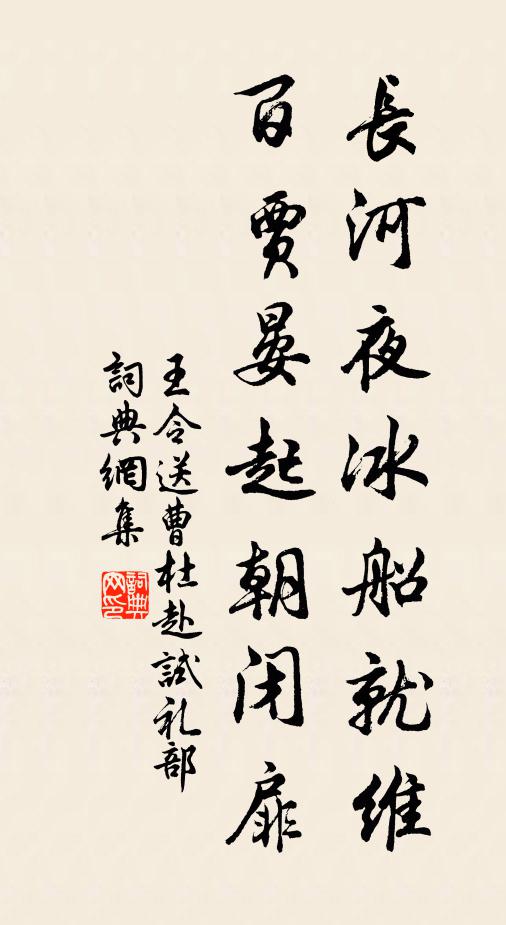 長河夜冰船就維
百賈晏起朝闭扉
王令送曹杜赴試礼部
詞典網集
詞典网印